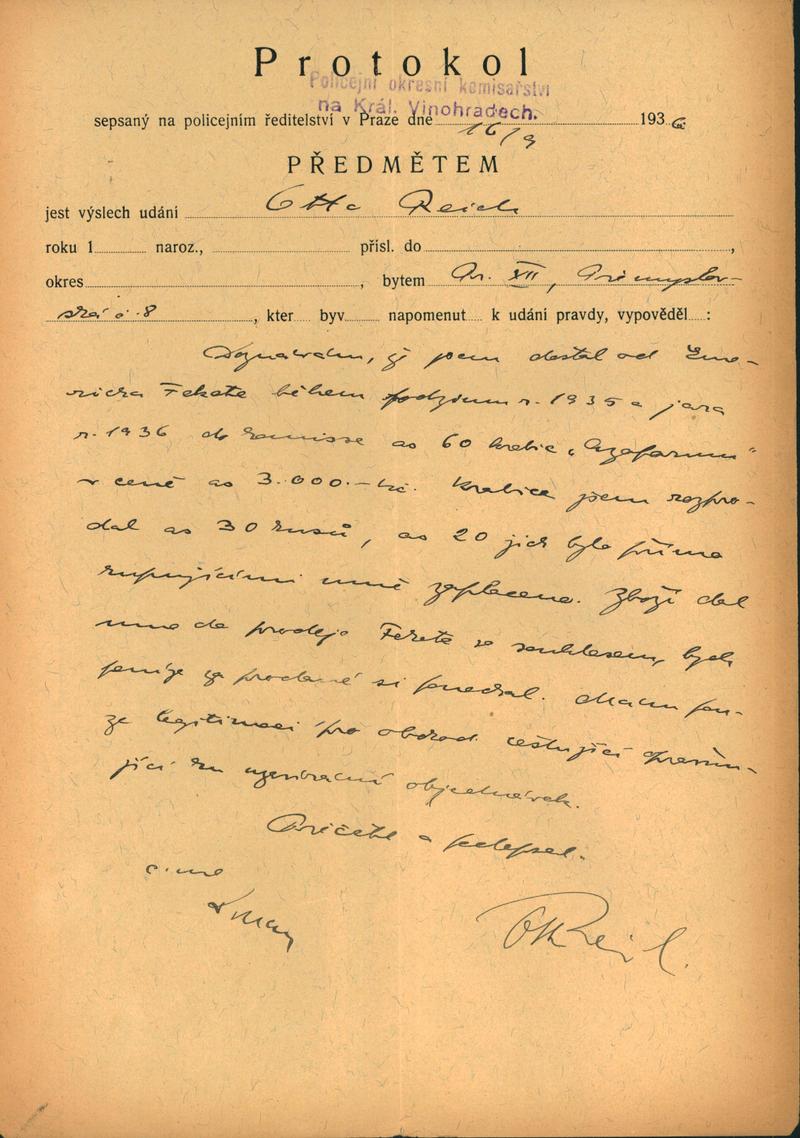 Protokol
Policejní okresní komisařství
na Král. Vinohradech.
sepsaný na policejním ředitelství v Praze dne 16/9 1936
PŘEDMĚTEM
jest výslech udání Otto Reich
roku 1 naroz., přísl. do ,
okres , bytem Pr. XII, Přemyslov-
ská č. 8 , kter byv napomenut k udání pravdy, vypověděl :
Doznávám, že jsem dostal od Eme-
richa Fekete během podzimu r. 1935 a jara
r. 1936 do komisse as 60 krabic „Azofarmu“
v ceně as 3.000.- Kč. Krabice jsem rozpro-
dal as 30 kusů, as 20 jich bylo přímo
kupujícími mně zaplaceno. Zboží dal
mne do prodeje Fekete se souhlasem, bych
peníze za prodané si ponechal. Mám pou-
ze legitimaci pro obchod. cestující opravňu-
jící ku objednávek.
Přečetl a podepsal.
Otto Reich.